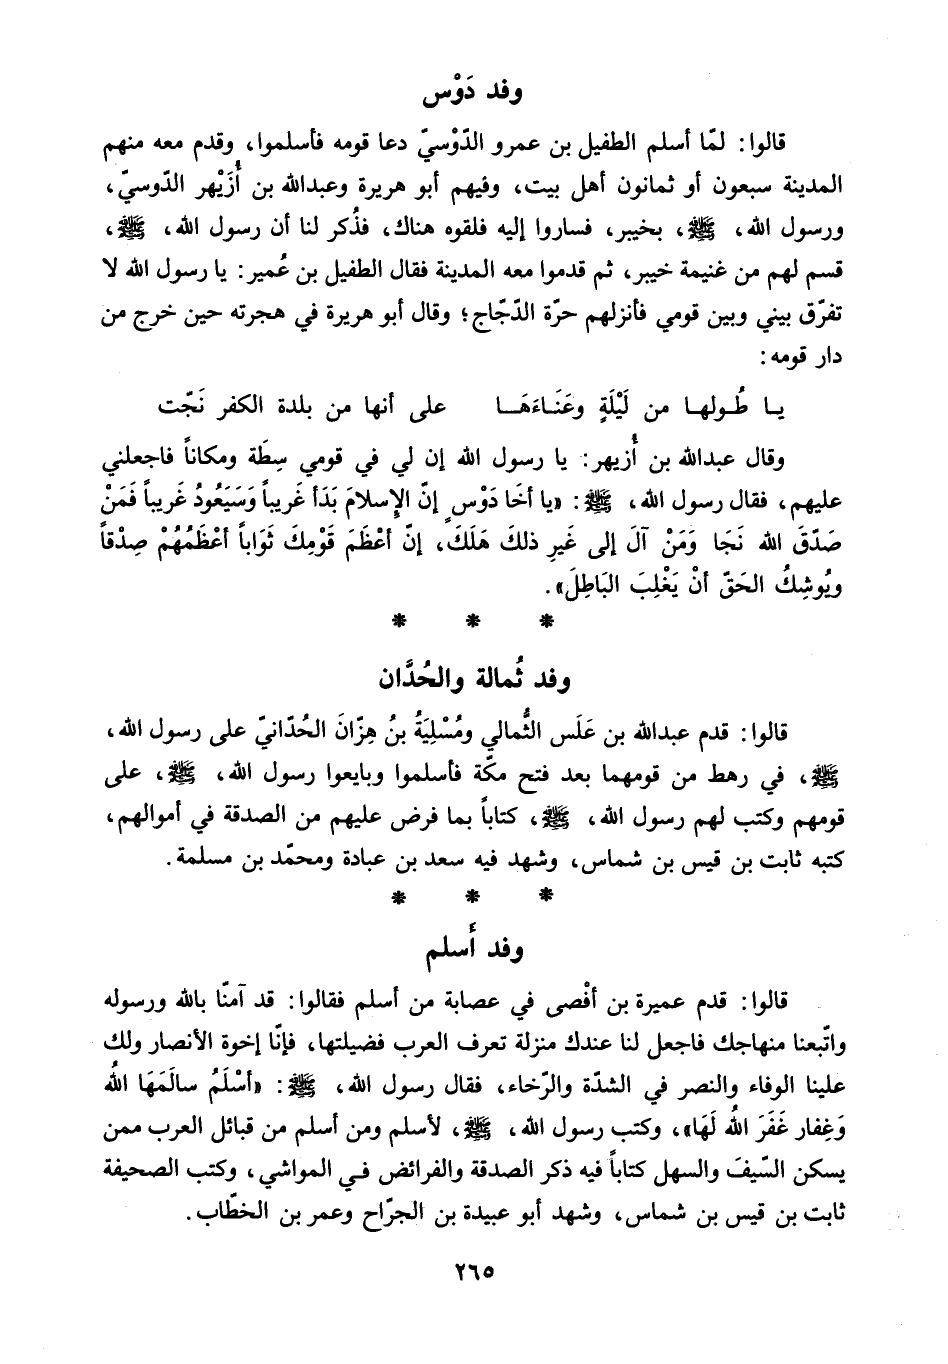 وفد دَوْس
قالوا: لمّا أسلم الطفيل بن عمرو الدّوْسيّ دعا قومه فأسلموا، وقدم معه منهم
المدينة سبعون أو ثمانون أهل بيت، وفيهم أبو هريرة وعبدالله بن أُزَيْهر الدّوسيّ،
ورسول الله، ﷺ، بخيبر، فساروا إليه فلقوه هناك، فذُكر لنا أن رسول الله، ﷺ،
قسم لهم من غنيمة خيبر، ثم قدموا معه المدينة فقال الطفيل بن عُمير: يا رسول الله لا
تفرّق بيني وبين قومي فأنزلهم حرّة الدّجّاج؛ وقال أبو هريرة في هجرته حين خرج من
دار قومه:
يـا طُـولهـا من لَيْلَةٍ وعَنَـاءَهَـا على أنها من بلدة الكفر نَجّت
وقال عبدالله بن أُزيهر: يا رسول الله إن لي في قومي سِطَة ومكاناً فاجعلني
عليهم، فقال رسول الله، ﷺ: «يا أخَا دَوْسٍ إنّ الإسلامَ بَدَأ غَريباً وَسَيَعُودُ غَريباً فَمَنْ
صَدّقَ الله نَجَا وَمَنْ آلَ إلى غَيرِ ذلكَ هَلَكَ، إنّ أعْظَمَ قَوْمِكَ ثَوَاباً أعْظَمُهُمْ صِدْقاً
ويُوشِكُ الحَقّ أنْ يَغْلِبَ البَاطِلَ».
* * *
وفد ثُمالة والحُدَّان
قالوا: قدم عبدالله بن عَلَس الثُّمالي ومُسْلِيَةُ بنُ هِزّانَ الحُدّانيّ على رسول الله،
ﷺ، في رهط من قومهما بعد فتح مكّة فأسلموا وبايعوا رسول الله، ﷺ، على
قومهم وكتب لهم رسول الله، ﷺ، كتاباً بما فرض عليهم من الصدقة في أموالهم،
كتبه ثابت بن قيس بن شماس، وشهد فيه سعد بن عبادة ومحمّد بن مسلمة.
* * *
وفد أَسلم
قالوا: قدم عميرة بن أفْصى في عصابة من أسلم فقالوا: قد آمنّا بالله ورسوله
واتّبعنا منهاجك فاجعل لنا عندك منزلة تعرف العرب فضيلتها، فإنّا إخوة الأنصار ولك
علينا الوفاء والنصر في الشدّة والرّخاء، فقال رسول الله، ﷺ: «أسْلَمُ سالَمَهَا اللهُ
وَغِفار غَفَرَ اللهُ لَهَا»، وكتب رسول الله، ﷺ، لأسلم ومن أسلم من قبائل العرب ممن
يسكن السّيفَ والسهل كتاباً فيه ذكر الصدقة والفرائض فـي المواشي، وكتب الصحيفة
ثابت بن قيس بن شماس، وشهد أبو عبيدة بن الجرّاح وعمر بن الخطّاب.
٢٦٥